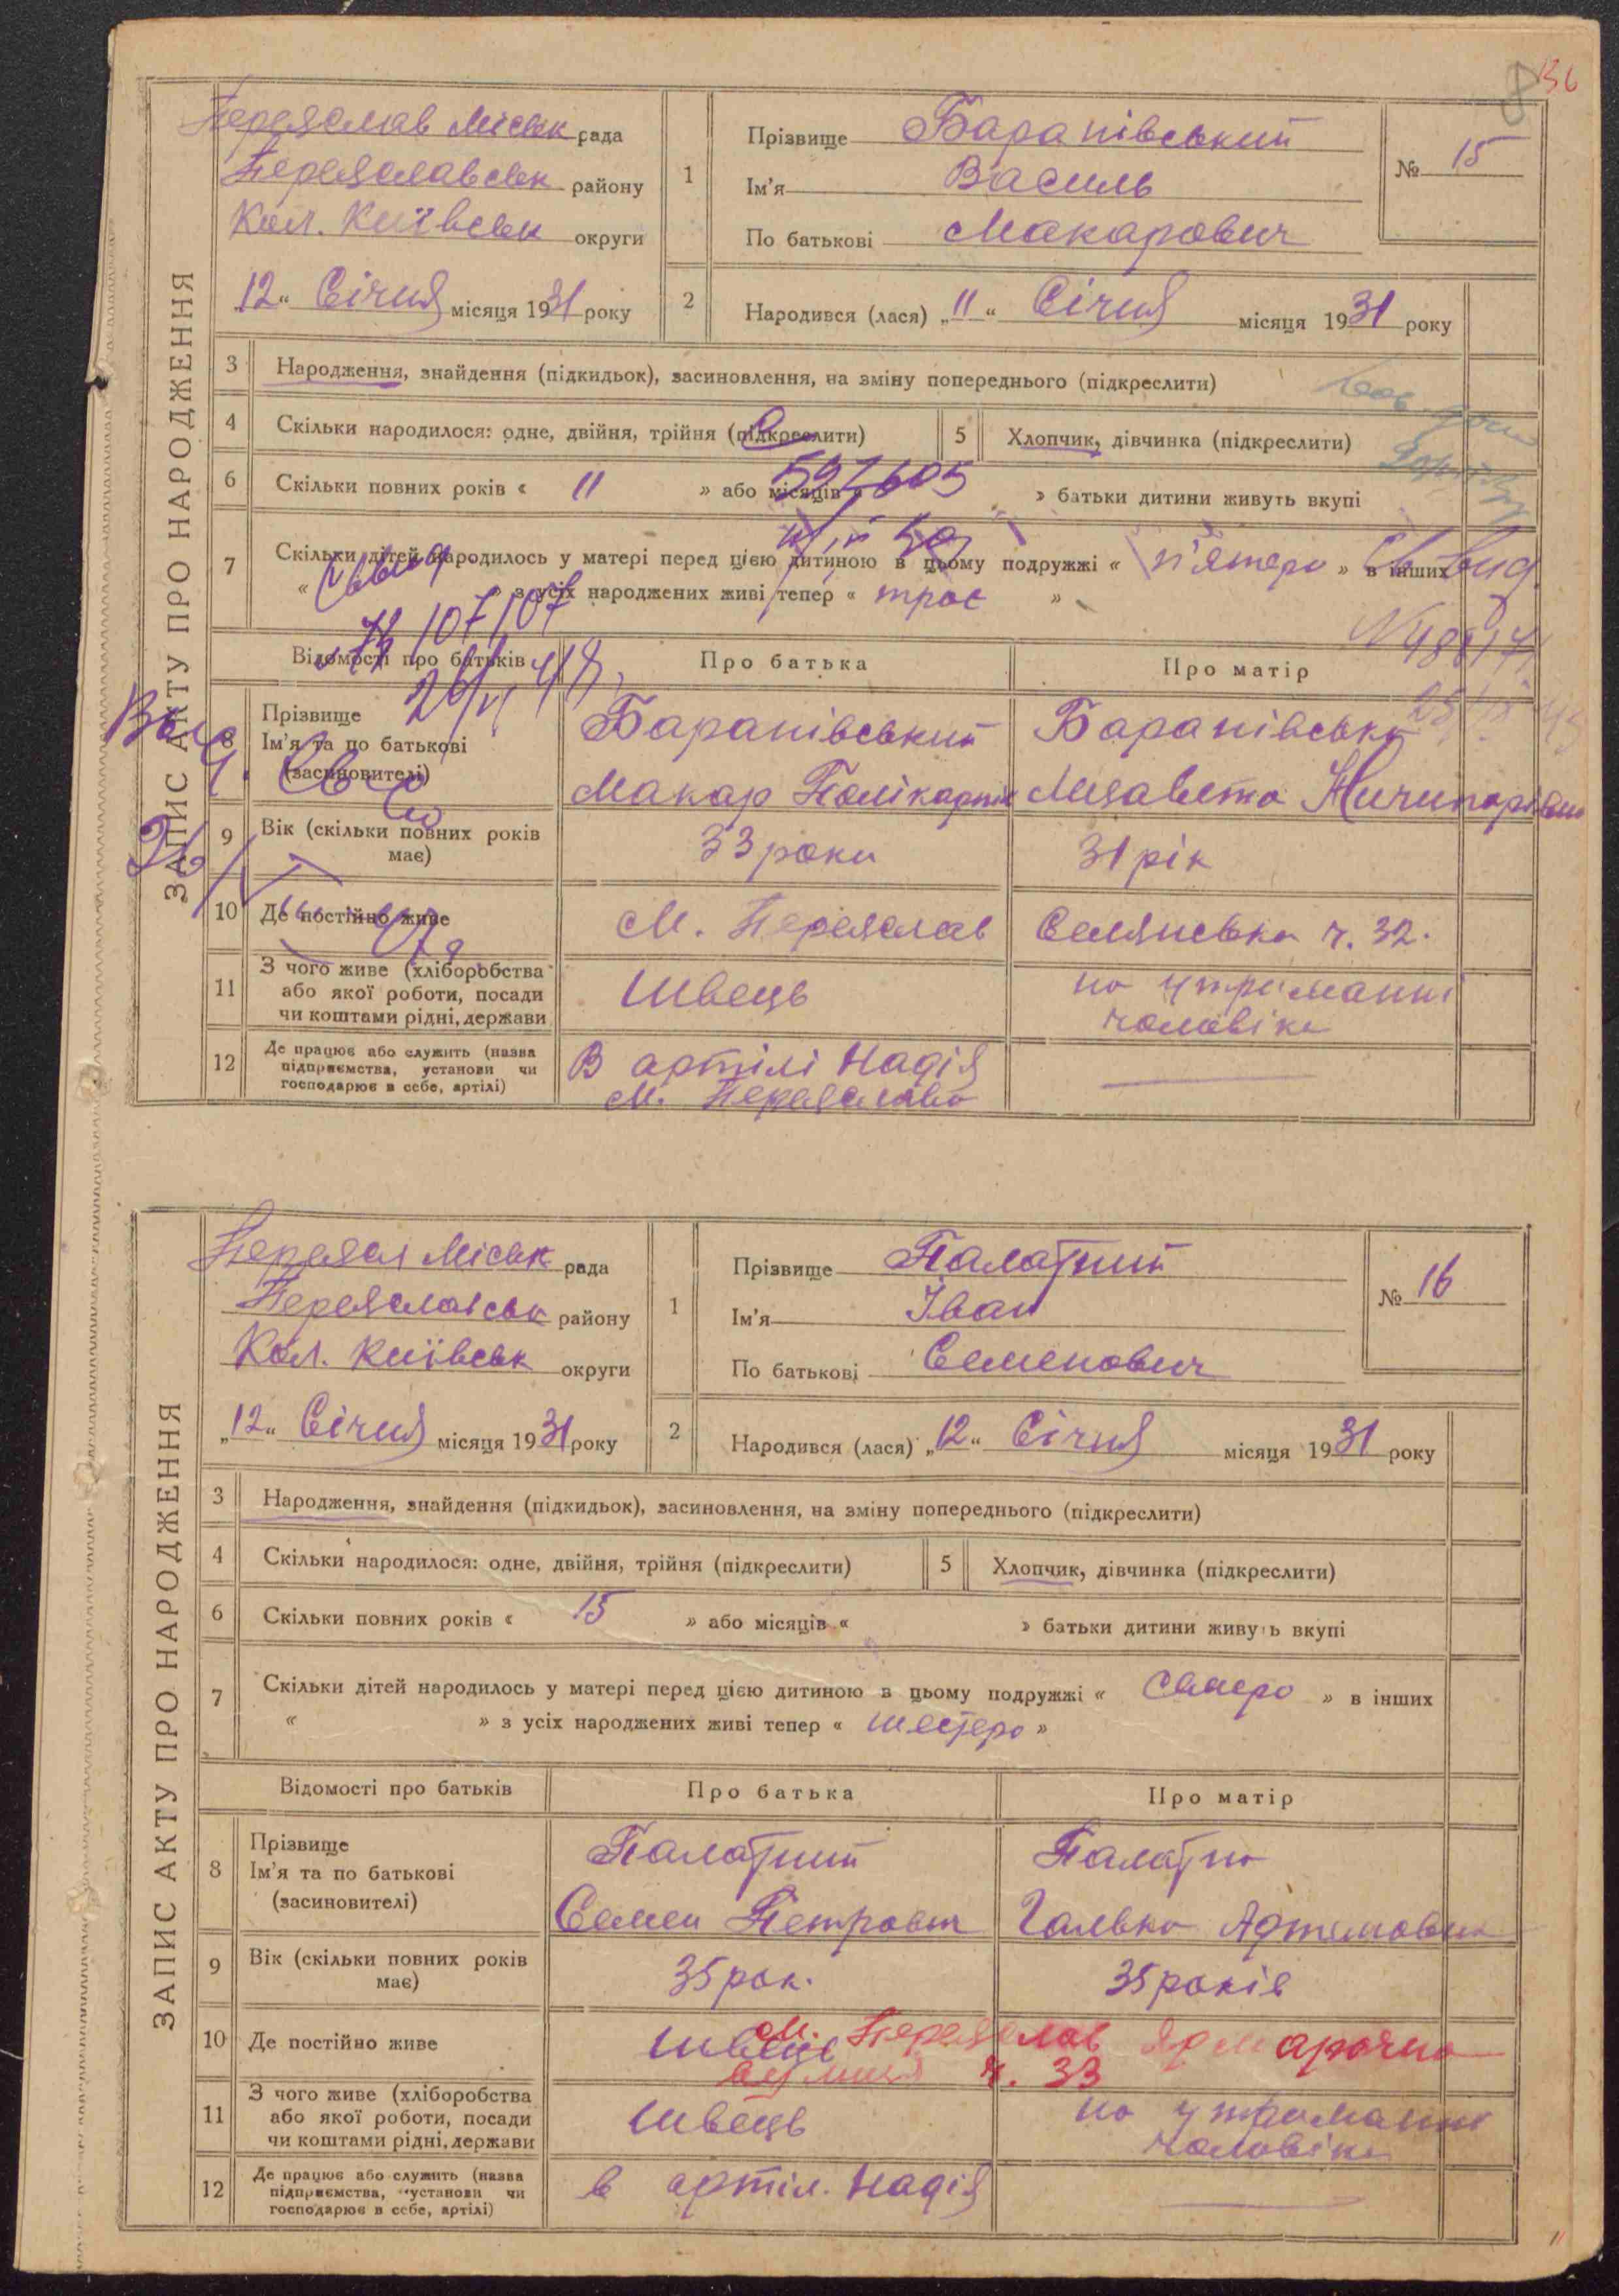 136
8
ЗАПИС АКТУ ПРО НАРОДЖЕННЯ
Переяслав Міськ рада
Переяславськ району
Кол. Київськ округи
„12“ Січня місяця 1931 року
1
Прізвище Барапівський
Ім'я Василь
По батькові Макарович
№ 15
2
Народився (лася) „11“ Січня місяця 1931 року
3 Народження, знайдення (підкидьок), засиновлення, на зміну попереднього (підкреслити)
4 Скільки народилося: одне, двійня, трійня (підкреслити)
5 Хлопчик, дівчинка (підкреслити)
6 Скільки повних років « 11 » або місяців « » батьки дитини живуть вкупі
597605
7 Скільки дітей народилось у матері перед цією дитиною в цьому подружжі « п'ятеро » в інших
« з усіх народжених живі тепер « троє »
Відомості про батьків Про батька Про матір
8 Прізвище
Ім'я та по батькові
(засиновителі)
Барапівський
Макар Полікарпов
Барапівська
Лизавета Ничипорівна
9 Вік (скільки повних років має) 33 роки 31 рік
10 Де постійно живе М. Переяслав Селянська ч. 32.
11 З чого живе (хліборобства
або якої роботи, посади
чи коштами рідні, держави
Швець
на утриманні
чоловіка
12 Де працює або служить (назва
підприємства, установи чи
господарює в себе, артілі)
В артілі Надія
м. Переяслава
ЗАПИС АКТУ ПРО НАРОДЖЕННЯ
Переясл Міськ рада
Переяславськ району
Кол. Київськ округи
„12“ Січня місяця 1931 року
1
Прізвище Палатний
Ім'я Іван
По батькові Семенович
№ 16
2
Народився (лася) „12“ Січня місяця 1931 року
3 Народження, знайдення (підкидьок), засиновлення, на зміну попереднього (підкреслити)
4 Скільки народилося: одне, двійня, трійня (підкреслити)
5 Хлопчик, дівчинка (підкреслити)
6 Скільки повних років « 15 » або місяців « » батьки дитини живуть вкупі
7 Скільки дітей народилось у матері перед цією дитиною в цьому подружжі « семеро » в інших
« » з усіх народжених живі тепер « шестеро »
Відомості про батьків Про батька Про матір
8 Прізвище
Ім'я та по батькові
(засиновителі)
Палатний
Семен Петрович
Палатна
Галька Артемовна
9 Вік (скільки повних років має) 35 рок. 35 років
10 Де постійно живе Швець
м. Переяслав Ярмарочна
вулиця ч. 33
11 З чого живе (хліборобства
або якої роботи, посади
чи коштами рідні, держави
Швець
на утриманні
чоловіка
12 Де працює або служить (назва
підприємства, установи чи
господарює в себе, артілі)
в артіл. Надія